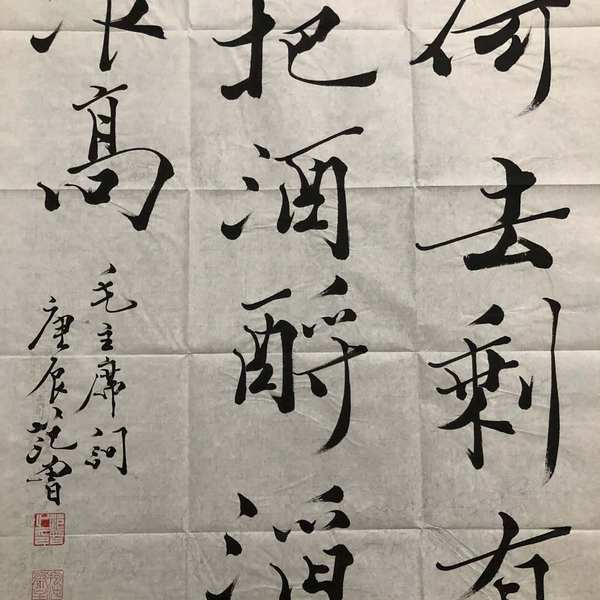 何去剩有
把酒酹滔
高
毛主席词
庚辰范曾